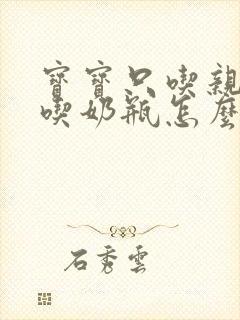 寶寶只喫親
喫奶瓶怎麼
石秀雲